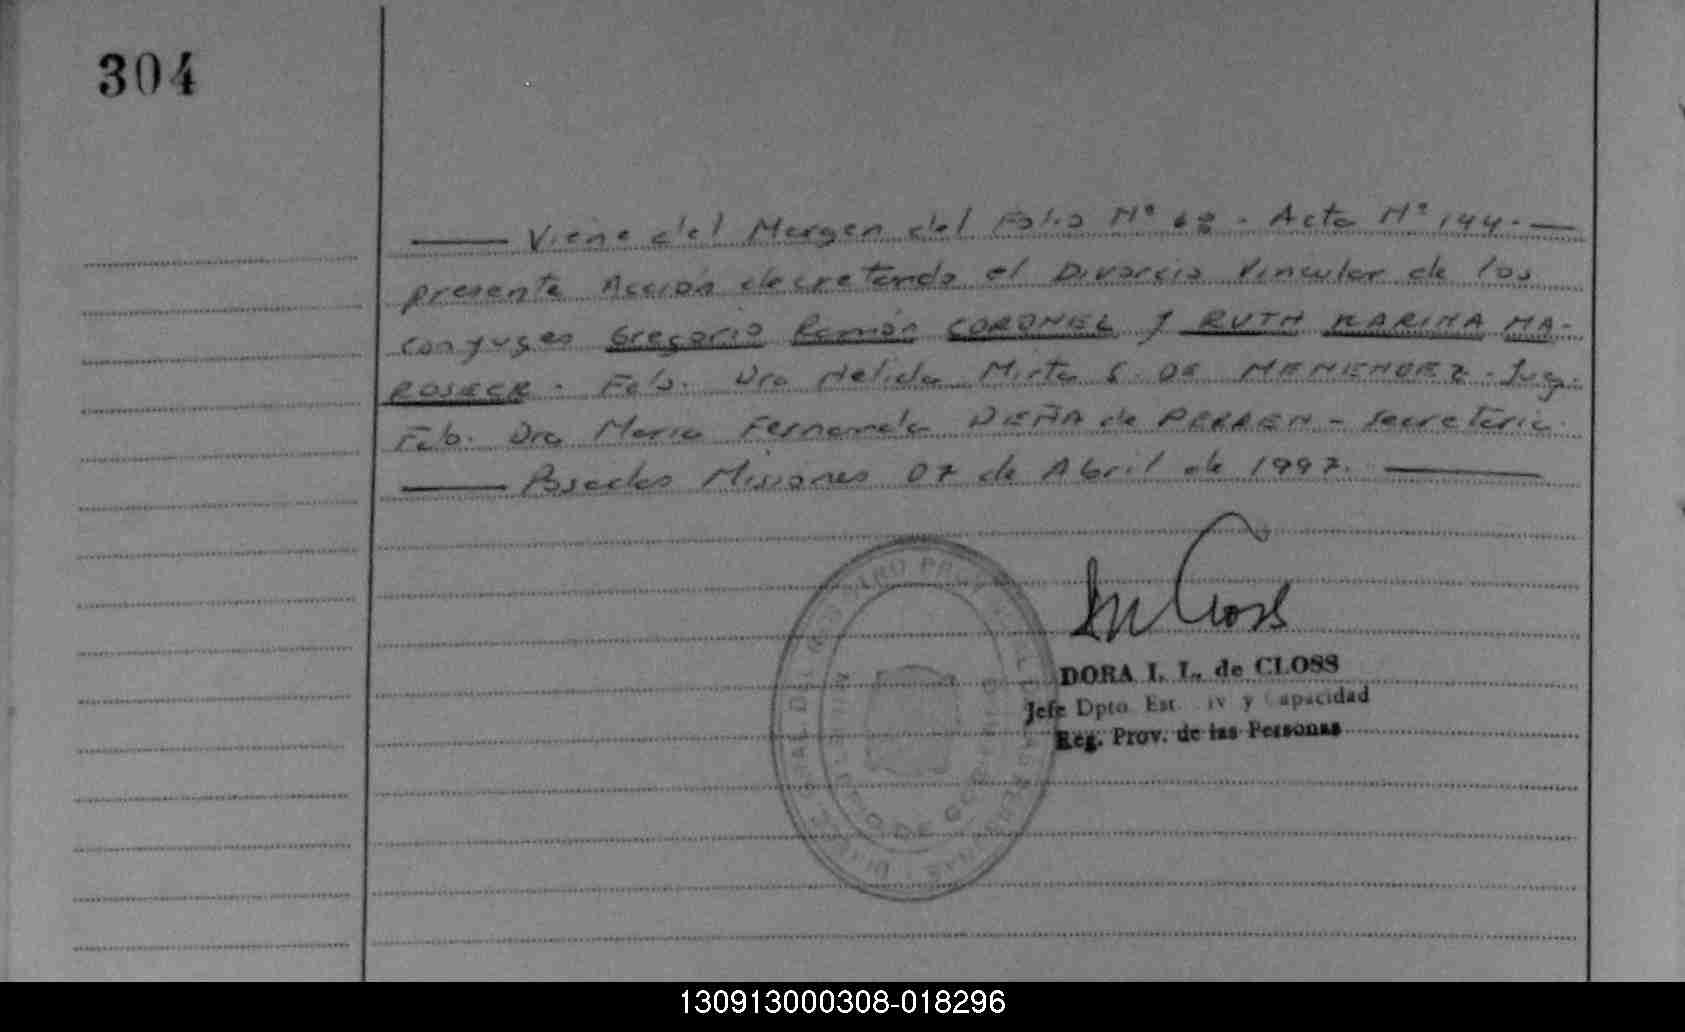 304
Viene del Margen del Folio Nº 68 - Acta Nº 144.
presente Acción decretando el Divorcio Vincular de los
conyuges Gregorio Ramón CORONEL y RUTH KARINA MA-
ROSECK - Fdo. Dra Nelida Mirta G. DE MENENDEZ - Juez.
Fdo. Dra Maria Fernanda DEÑA de PERREN - secretaria
Posadas Misiones 07 de Abril de 1997.
DORA I. L. de CLOSS
Jefe Dpto. Est. iv y Capacidad
Reg. Prov. de las Personas
130913000308-018296